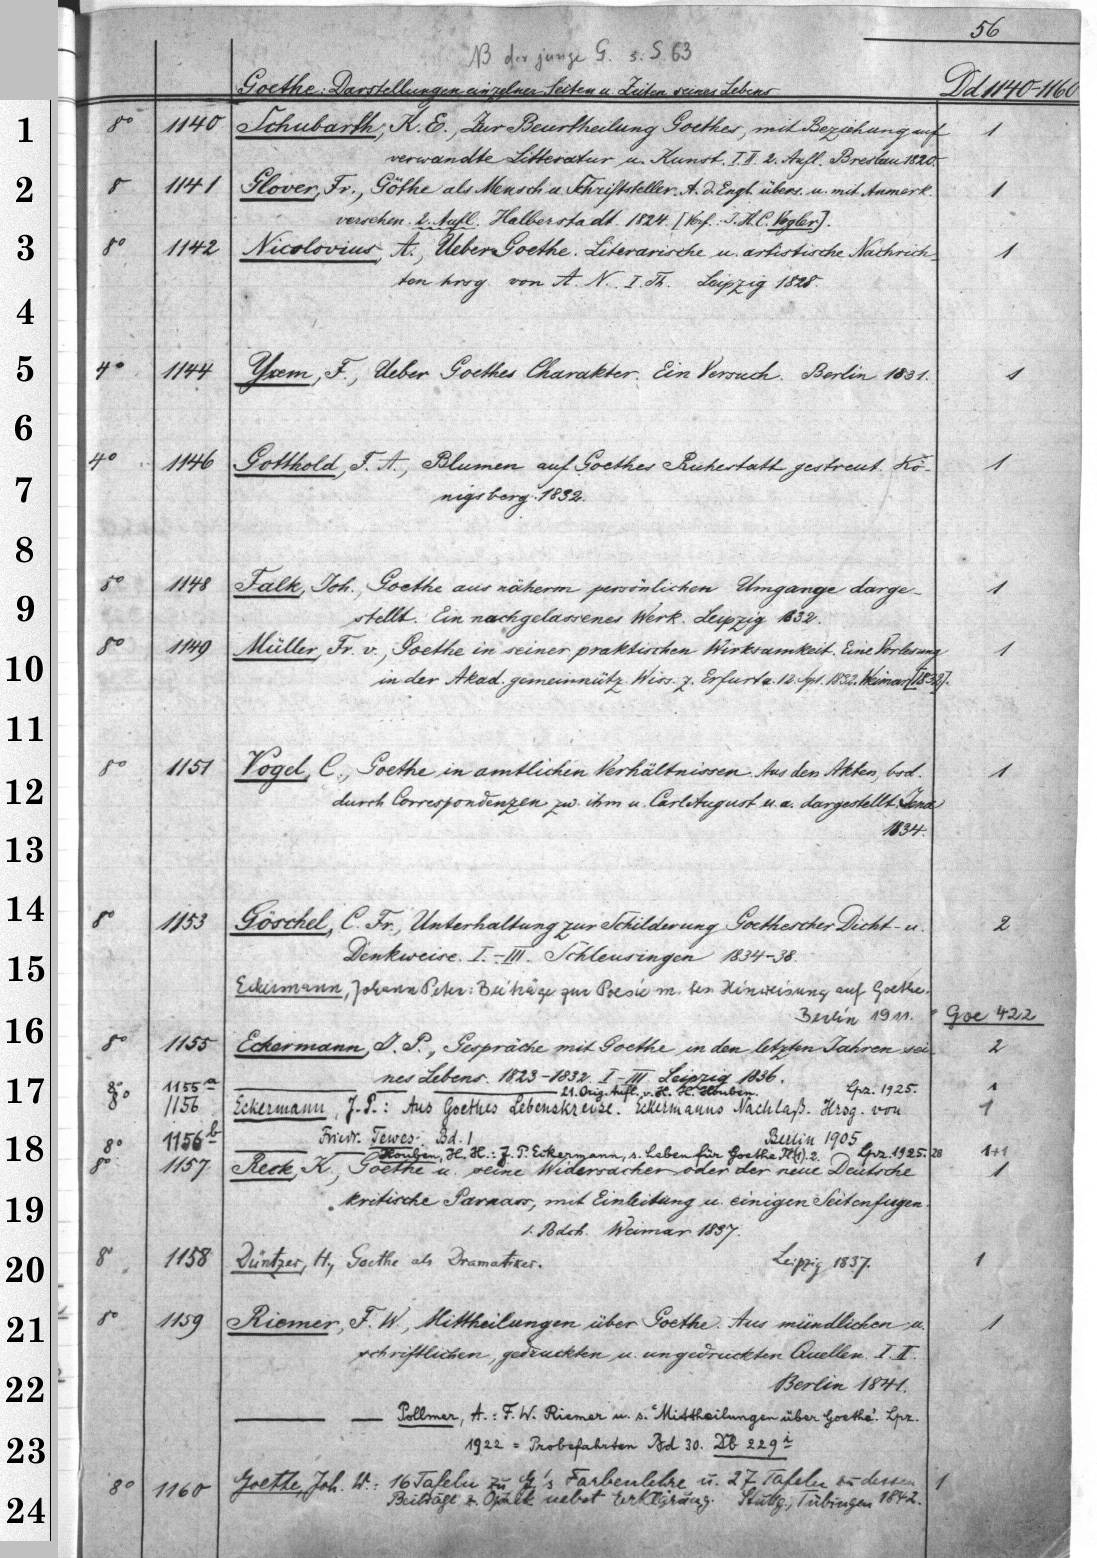 56
NB der junge G. s. S. 63
Goethe: Darstellungen einzelner Seiten u. Zeiten seines Lebens Dd 1140-1160
1 8° 1140 Schubarth, K. E., Zur Beurtheilung Goethes, mit Beziehung auf 1
verwandte Litteratur u. Kunst. I. II. 2. Aufl. Breslau 1820.
2 8 1141 Glover, Fr., Göthe als Mensch u. Schriftsteller. A. d. Engl. übers. u. mit Anmerk. 1
versehen. 2. Aufl. Halberstadt. 1824. [Verf. J. H. C. Vogler].
3 8° 1142 Nicolovius, A., Ueber Goethe. Literarische u. artistische Nachrich- 1
ten hrsg. von A. N. I. Th. Leipzig 1828.
4
5 4° 1144 Yxem, F., Ueber Goethes Charakter. Ein Versuch. Berlin 1831. 1
6
4° 1146 Gotthold, F. A., Blumen auf Goethes Ruhestatt gestreut. Kö- 1
7 nigsberg. 1832.
8
8° 1148 Falk, Joh., Goethe aus näherm persönlichen Umgange darge- 1
9 stellt. Ein nachgelassenes Werk. Leipzig 1832.
8° 1149 Müller, Fr. v., Goethe in seiner praktischen Wirksamkeit. Eine Vorlesung 1
10 in der Akad. gemeinnütz. Wiss. z. Erfurt a. 12. Spt. 1832. Weimar [1832].
11
8° 1151 Vogel, C., Goethe in amtlichen Verhältnissen. Aus den Akten, bsd. 1
12 durch Correspondenzen zw. ihm u. Carl August u. a. dargestellt. Jena
1834.
13
14 8° 1153 Göschel, C. Fr., Unterhaltung zur Schilderung Goethescher Dicht- u. 2
15 Denkweise. I.-III. Schleusingen 1834-38.
Eckermann, Johann Peter: Beiträge zur Poesie m. bes. Hinweisung auf Goethe.
Berlin 1911. Goe 422
16 8° 1155 Eckermann, J. P., Gespräche mit Goethe in den letzten Jahren sei- 2
nes Lebens. 1823-1832. I-III. Leipzig 1836.
17 8° 1155a 21. Orig. Aufl. v. H. H. Houben. Lpz. 1925. 1
8° 1156 Eckermann, J. P.: Aus Goethes Lebenskreise. Eckermanns Nachlaß. Hrsg. von 1
Friedr. Tewes. Bd. 1 Berlin 1905
18 8° 1156b Houben, H. H.: J. P. Eckermann, s. Leben für Goethe. Tl. (1). 2. Lpz. 1925. 28 1+1
8° 1157 Reck, K., Goethe u. seine Widersacher oder der neue Deutsche 1
19 kritische Parnass, mit Einleitung u. einigen Seitenfugen.
1. Bdch. Weimar 1837.
20 8° 1158 Düntzer, H., Goethe als Dramatiker. Leipzig 1837. 1
21 8° 1159 Riemer, F. W., Mittheilungen über Goethe. Aus mündlichen u. 1
schriftlichen, gedruckten u. ungedruckten Quellen. I. II.
22 Berlin 1841.
Pollmer, A.: F. W. Riemer u. s. "Mittheilungen über Goethe". Lpz.
23 1922 = Probefahrten Bd 30. Db 229 i
8° 1160 Goethe, Joh. W.: 16 Tafeln zu G's Farbenlehre u. 27 Tafeln zu dessen 1
24 Beiträge z. Optik nebst Erklärung. Stuttg., Tübingen 1842.